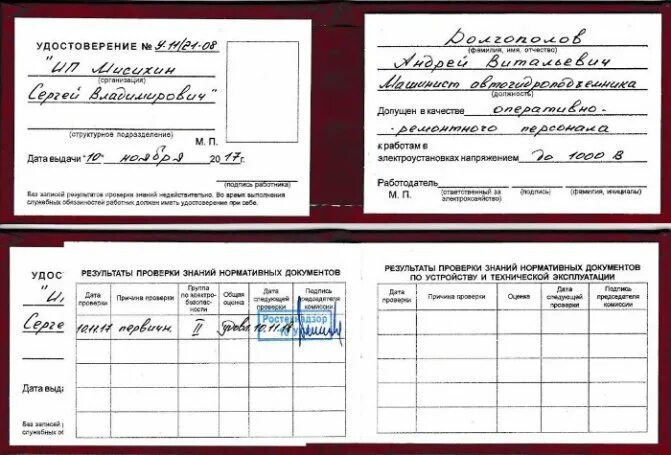 УДОСТОВЕРЕНИЕ № У-11/21-08
"ИП Мисихин
(организация)
Сергей Владимирович"
(структурное подразделение)
М. П.
Дата выдачи "10" ноября 2017г.
(подпись работника)
Без записей результатов проверки знаний недействительно. Во время выполнения
служебных обязанностей работник должен иметь удостоверение при себе.
Долгополов
(фамилия, имя, отчество)
Андрей Витальевич
Машинист автогидроподъемника
(должность)
Допущен в качестве оперативно-
ремонтного персонала
к работам в
электроустановках напряжением до 1000 В
Работодатель
М. П. (ответственный за электрохозяйство) (подпись) (фамилия, инициалы)
УДОС
"И
Серге
Дата выда
Без записей р
служебных об
РЕЗУЛЬТАТЫ ПРОВЕРКИ ЗНАНИЙ НОРМАТИВНЫХ ДОКУМЕНТОВ
Дата проверки Причина проверки Группа по электробезопасности Общая оценка Дата следующей проверки Подпись председателя комиссии
10.11.17 первичн. II удовл 10.11.18
Ростехнадзор
РЕЗУЛЬТАТЫ ПРОВЕРКИ ЗНАНИЙ НОРМАТИВНЫХ ДОКУМЕНТОВ
ПО УСТРОЙСТВУ И ТЕХНИЧЕСКОЙ ЭКСПЛУАТАЦИИ
Дата проверки Причина проверки Оценка Дата следующей проверки Подпись председателя комиссии